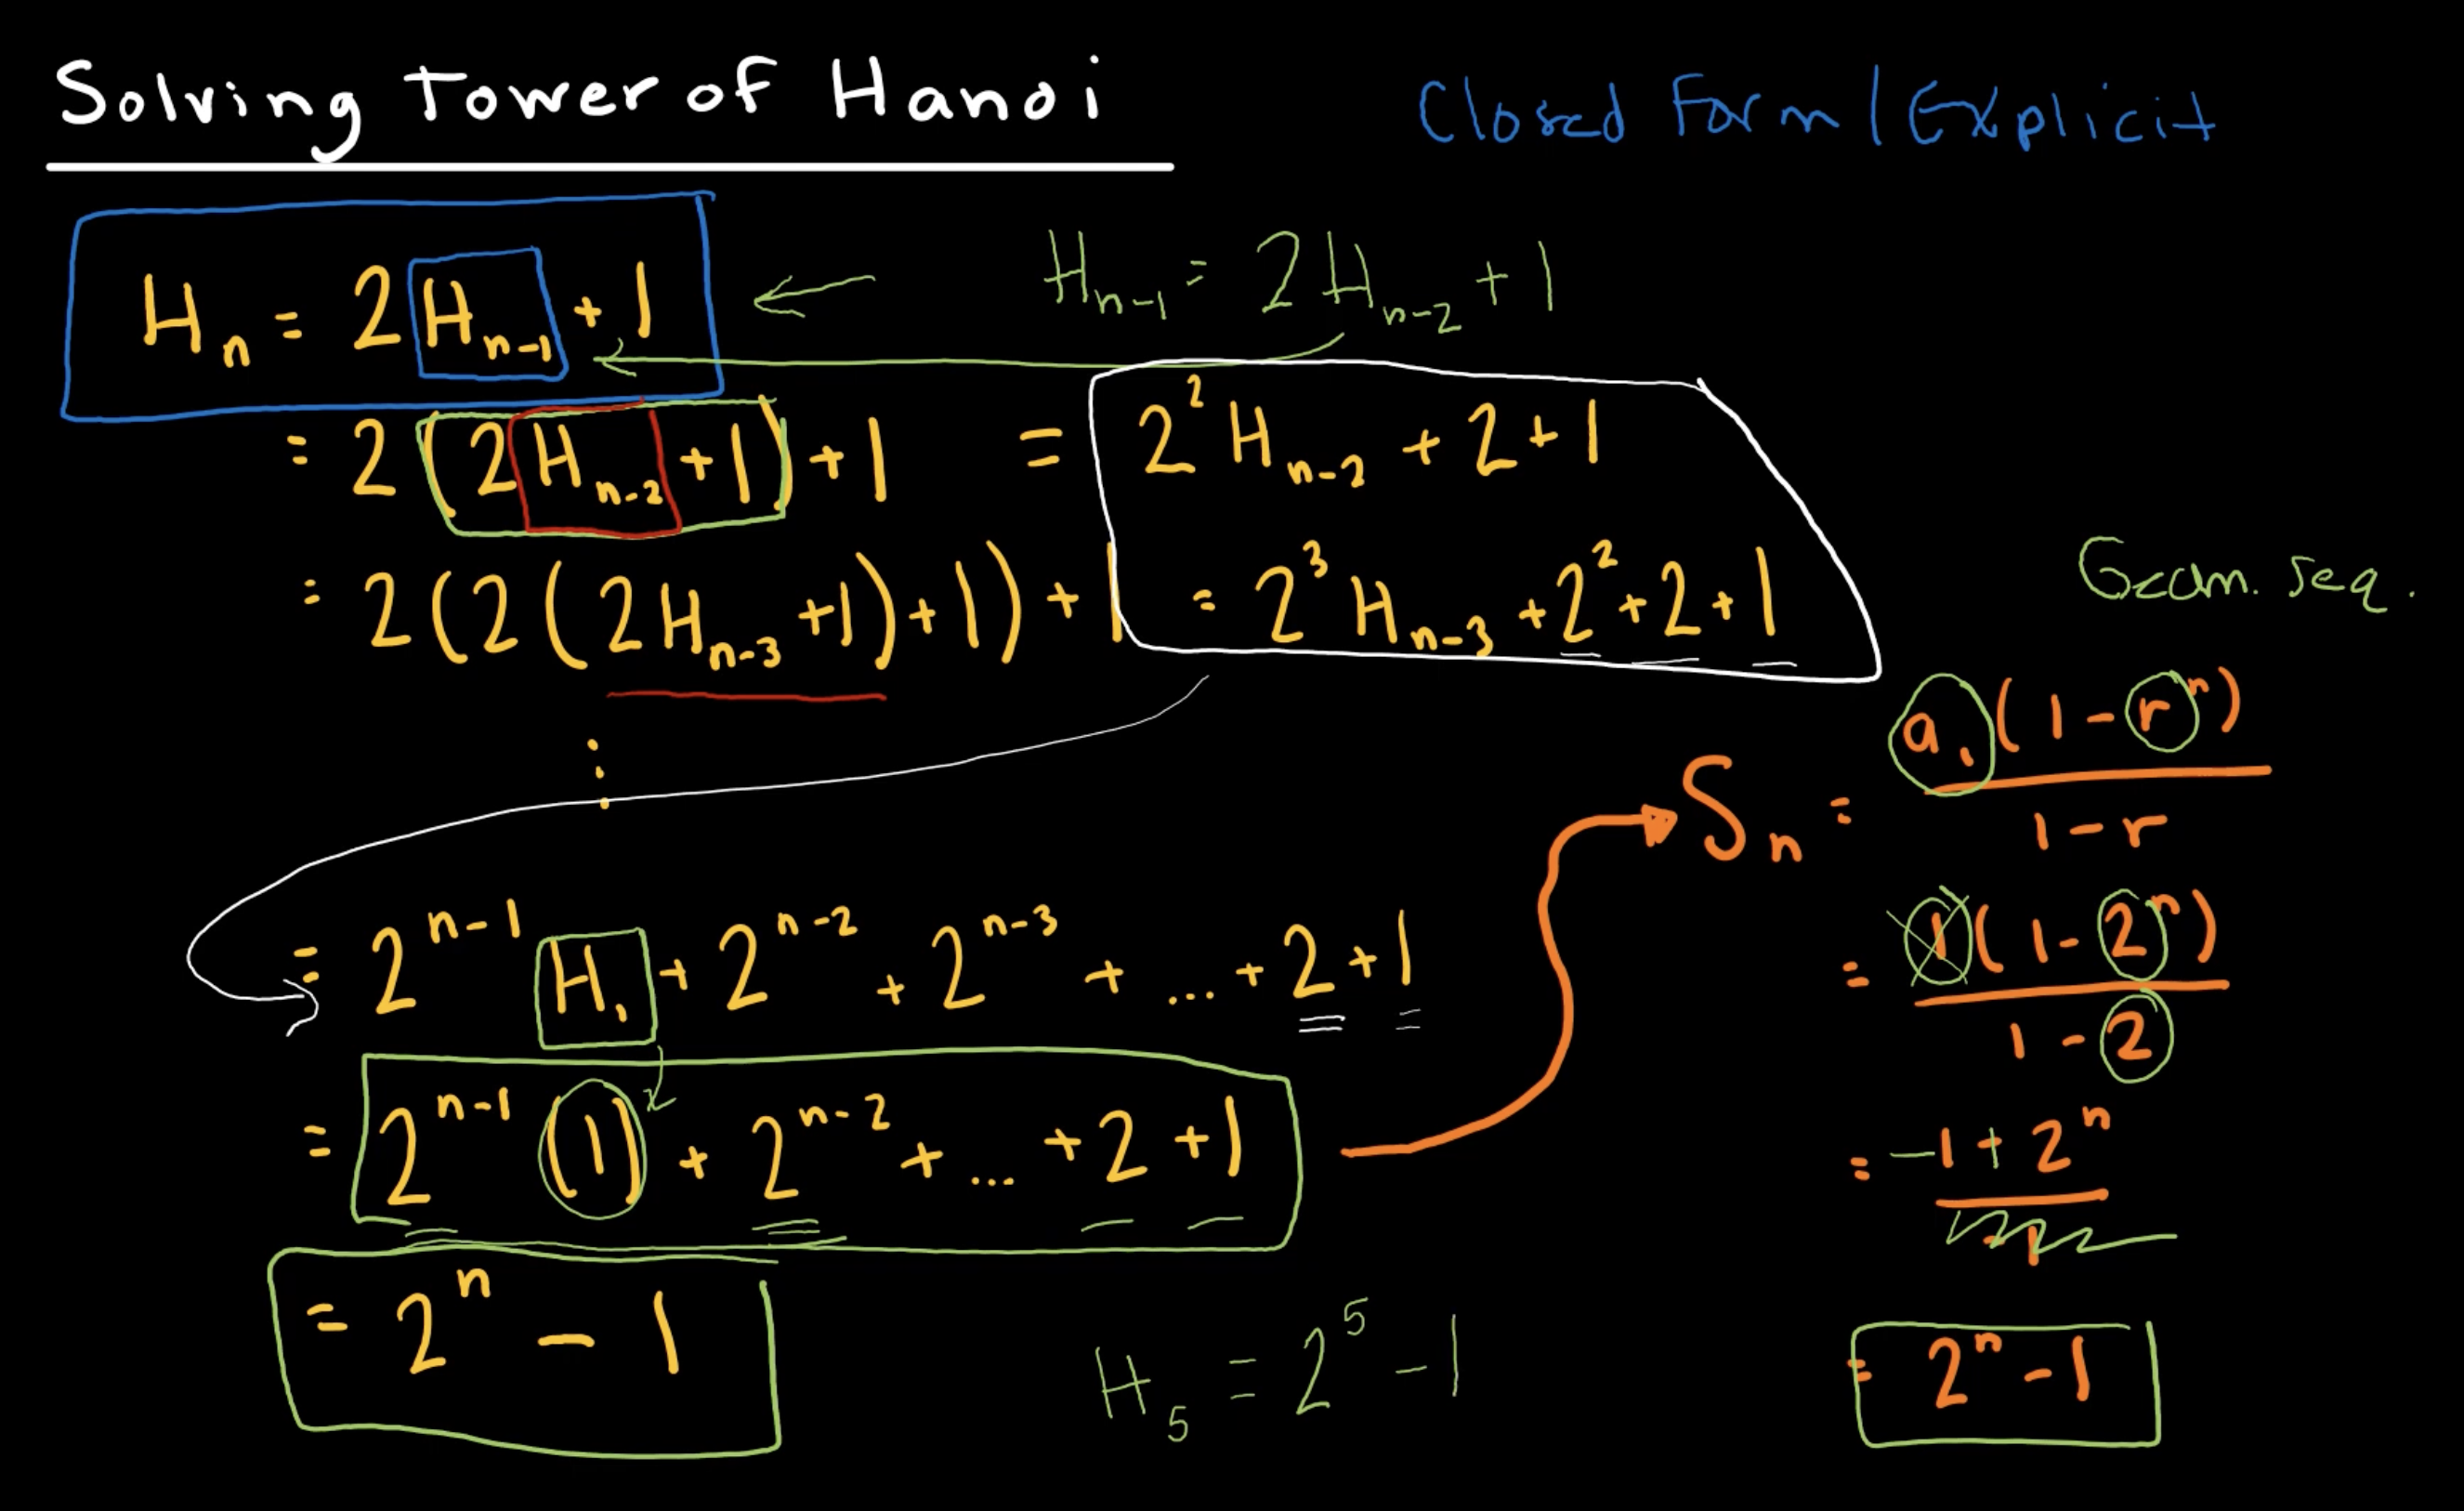 Solving Tower of Hanoi
Closed Form / Explicit
Hₙ = 2Hₙ₋₁ + 1
Hₙ₋₁ = 2Hₙ₋₂ + 1
= 2(2Hₙ₋₂ + 1) + 1 = 2²Hₙ₋₂ + 2 + 1
= 2(2(2Hₙ₋₃ + 1) + 1) + 1 = 2³Hₙ₋₃ + 2² + 2 + 1
⋮
= 2ⁿ⁻¹ H₁ + 2ⁿ⁻² + 2ⁿ⁻³ + ... + 2 + 1
= 2ⁿ⁻¹ (1) + 2ⁿ⁻² + ... + 2 + 1
= 2ⁿ - 1
H₅ = 2⁵ - 1
Geom. Seq.
Sₙ = a₁(1 - rⁿ) / 1 - r
= 1(1 - 2ⁿ) / 1 - 2
= -1 + 2ⁿ / -1
= 2ⁿ - 1